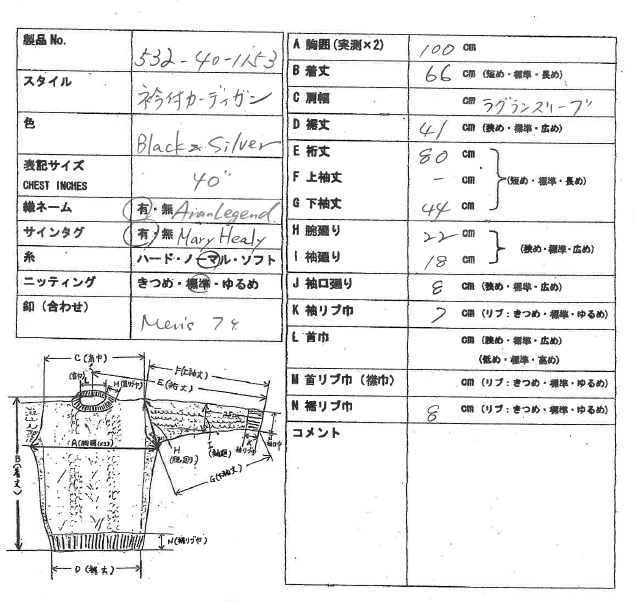 製品No.
532-40-1153
スタイル
衿付カーディガン
色
Black & Silver
表記サイズ
CHEST INCHES
40"
織ネーム
有・無 Aran Legend
サインタグ
有・無 Mary Healy
糸
ハード・ノーマル・ソフト
ニッティング
きつめ・標準・ゆるめ
釦（合わせ）
Men's 7ケ
A 胸囲(実測×2) 100 cm
B 着丈 66 cm (短め・標準・長め)
C 肩幅 cm ラグランスリーブ
D 裾丈 41 cm (狭め・標準・広め)
E 裄丈 80 cm
F 上袖丈 - cm (短め・標準・長め)
G 下袖丈 44 cm
H 腕廻り 22 cm
(狭め・標準・広め)
I 袖廻り 18 cm
J 袖口廻り 8 cm (狭め・標準・広め)
K 袖リブ巾 7 cm (リブ：きつめ・標準・ゆるめ)
L 首巾 cm (狭め・標準・広め)
(低め・標準・高め)
M 首リブ巾（襟巾） cm (リブ：きつめ・標準・ゆるめ)
N 裾リブ巾 8 cm (リブ：きつめ・標準・ゆるめ)
コメント
C (肩巾)
F(上袖丈)
E (裄丈)
L
M (首リブ巾)
A (胸囲(×2))
B (着丈)
H
(腕廻り)
I
G(下袖丈)
N(裾リブ巾)
D (裾丈)